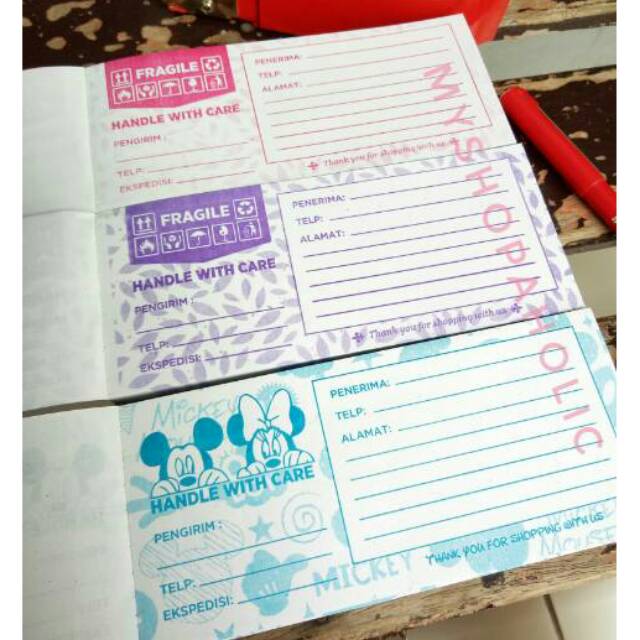 FRAGILE
HANDLE WITH CARE
PENGIRIM :
TELP:
EKSPEDISI:
PENERIMA:
TELP:
ALAMAT:
Thank you for shopping with us
FRAGILE
HANDLE WITH CARE
PENGIRIM :
TELP:
EKSPEDISI:
PENERIMA:
TELP:
ALAMAT:
Thank you for shopping with us
MICKEY
HANDLE WITH CARE
PENGIRIM :
TELP:
EKSPEDISI:
PENERIMA:
TELP:
ALAMAT:
THANK YOU FOR SHOPPING WITH US
MICKEY
MOUSE
MYSHOPAHOLIC